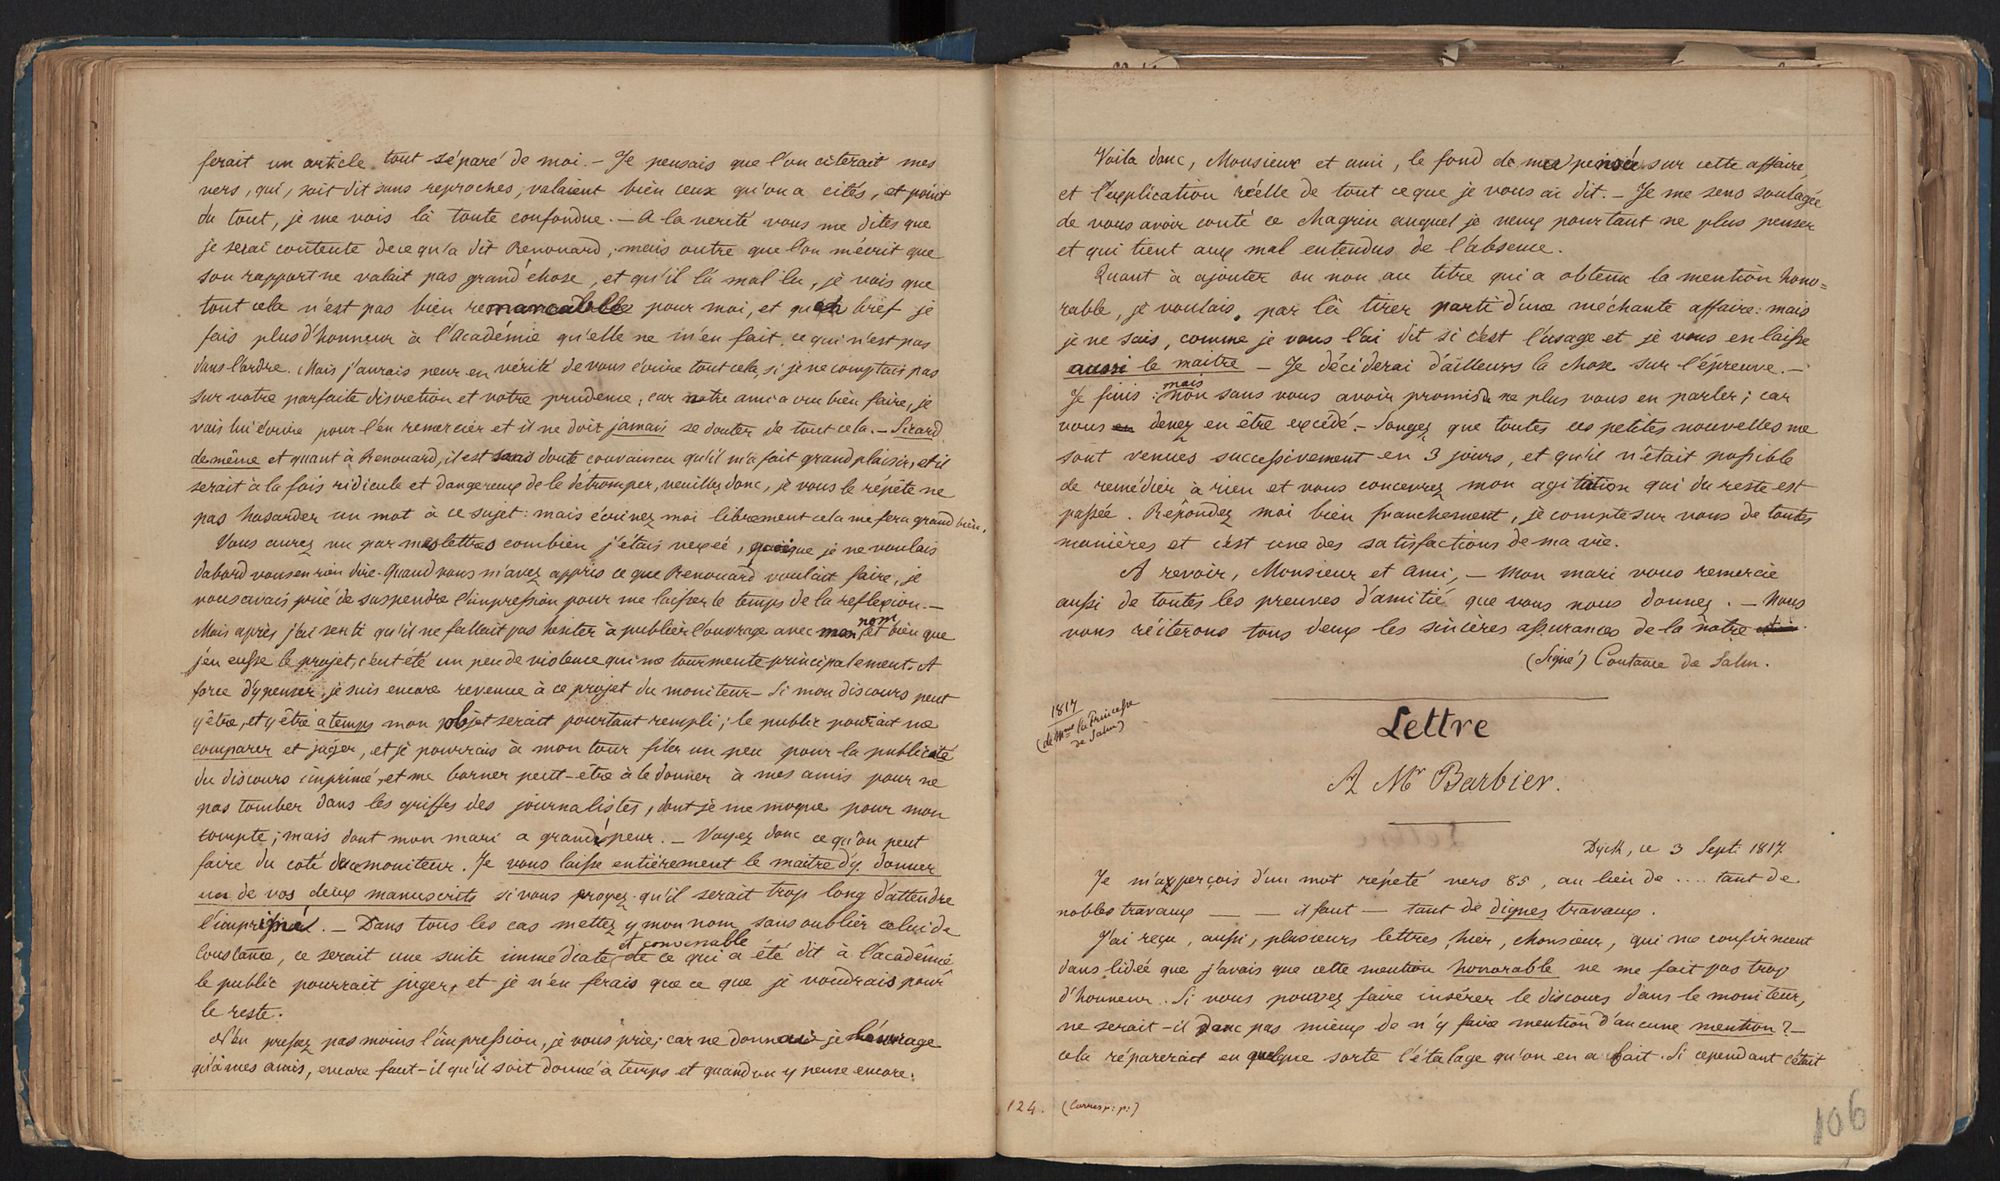 ferait un article tout séparé de moi. — Je pensais que l'on citerait mes
vers, qui, soit dit sans reproches, valaient bien ceux qu'on a cités, et point
du tout, je me vois là toute confondue. — A la verité vous me dites que
je serai contente de ce qu'a dit Renouard; mais outre que l'on m'écrit que
son rapport ne valait pas grand'chose, et qu'il l'a mal lu, je vois que
tout cela n'est pas bien remarcable pour moi, et qu'en bref je
fais plus d'honneur à l'Académie qu'elle ne m'en fait, ce qui n'est pas
dans l'ordre. Mais j'aurais peur en vérité de vous écrire tout cela, si je ne comptais pas
sur votre parfaite discretion et votre prudence, car notre ami a cru bien faire, je
vais lui écrire pour l'en remercier et il ne doit jamais se douter de tout cela. — Sicard
de même et quant à Renouard, il est sans doute convaincu qu'il m'a fait grand plaisir, et il
serait à la fois ridicule et dangereux de le détromper, veuillez donc, je vous le répète ne
pas hasarder un mot à ce sujet: mais écrivez moi librement cela me fera grand bien.
Vous aurez vu par mes lettres combien j'étais vexée, quoique je ne voulais
d'abord vous en rien dire. Quand vous m'avez appris ce que Renouard voulait faire, je
vous avais prié de suspendre l'impression pour me laisser le temps de la reflexion. —
Mais après j'ai senti qu'il ne fallait pas hésiter à publier l'ouvrage avec mon nom et bien que
j'en eusse le projet, c'eut été un peu de violence qui me tourmente principalement. A
force d'y penser, je suis encore revenue à ce projet du moniteur — Si mon discours peut
y être, et y être a temps mon objet serait pourtant rempli; le public pourrait me
comparer et juger, et je pourrais à mon tour filer un peu pour la publicité
du discours imprimé, et me borner peut-être à le donner à mes amis pour ne
pas tomber dans les griffes des journalistes, dont je me moque pour mon
compte; mais dont mon mari a grand'peur. — Voyez donc ce qu'on peut
faire du coté du moniteur. Je vous laisse entièrement le maitre d'y donner
un de vos deux manuscrits si vous croyez qu'il serait trop long d'attendre
l'imprimé. — Dans tous les cas mettez y mon nom, sans oublier celui de
Constance, ce serait une suite immédiate et convenable de ce qui a été dit à l'académie
le public pourrait juger, et je n'en ferais que ce que je voudrais pour
le reste.
N'en pressez pas moins l'impression, je vous prie; car ne donnai-je l'ouvrage
qu'à mes amis, encore faut-il qu'il soit donné à temps et quand on y pense encore.
Voila donc, Monsieur et ami, le fond de ma pensée sur cette affaire,
et l'explication réelle de tout ce que je vous ai dit. — Je me sens soulagée
de vous avoir conté ce chagrin auquel je veux pourtant ne plus penser
et qui tient aux mal entendus de l'absence.
Quant à ajouter ou non au titre qui a obtenu la mention hono=
rable, je voulais, par là tirer parti d'une méchante affaire: mais
je ne sais, comme je vous l'ai dit si c'est l'usage et je vous en laisse
aussi le maitre — Je déciderai d'ailleurs la chose sur l'épreuve. —
Je finis: mais non sans vous avoir promis de ne plus vous en parler; car
vous en devez en être excédé. — Songez que toutes ces petites nouvelles me
sont venues successivement en 3 jours, et qu'il n'était possible
de remédier à rien et vous concevrez mon agitation qui du reste est
passée. Répondez moi bien franchement, je compte sur vous de toutes
manières et c'est une des satisfactions de ma vie.
A revoir, Monsieur et Ami, — Mon mari vous remercie
aussi de toutes les preuves d'amitié que vous nous donnez. — Nous
vous réiterons tous deux les sincères assurances de la notre.
(Signé) Contance de Salm.
1817
(de Mme la Princesse
de Salm)
Lettre
A Mr Barbier.
Dyck, ce 3 Sept. 1817
Je m'apperçois d'un mot répeté vers 85, au lieu de .... tant de
nobles travaux — — il faut — tant de dignes travaux.
J'ai reçu, aussi, plusieurs lettres, hier, Monsieur, qui me confirment
dans l'idée que j'avais que cette mention honorable ne me fait pas trop
d'honneur. Si vous pouvez faire insérer le discours dans le moniteur,
ne serait-il donc pas mieux de n'y faire mention d'aucune mention? —
cela réparerait en quelque sorte l'étalage qu'on en a fait. Si cependant c'était
124. (Corresp. p.)
106